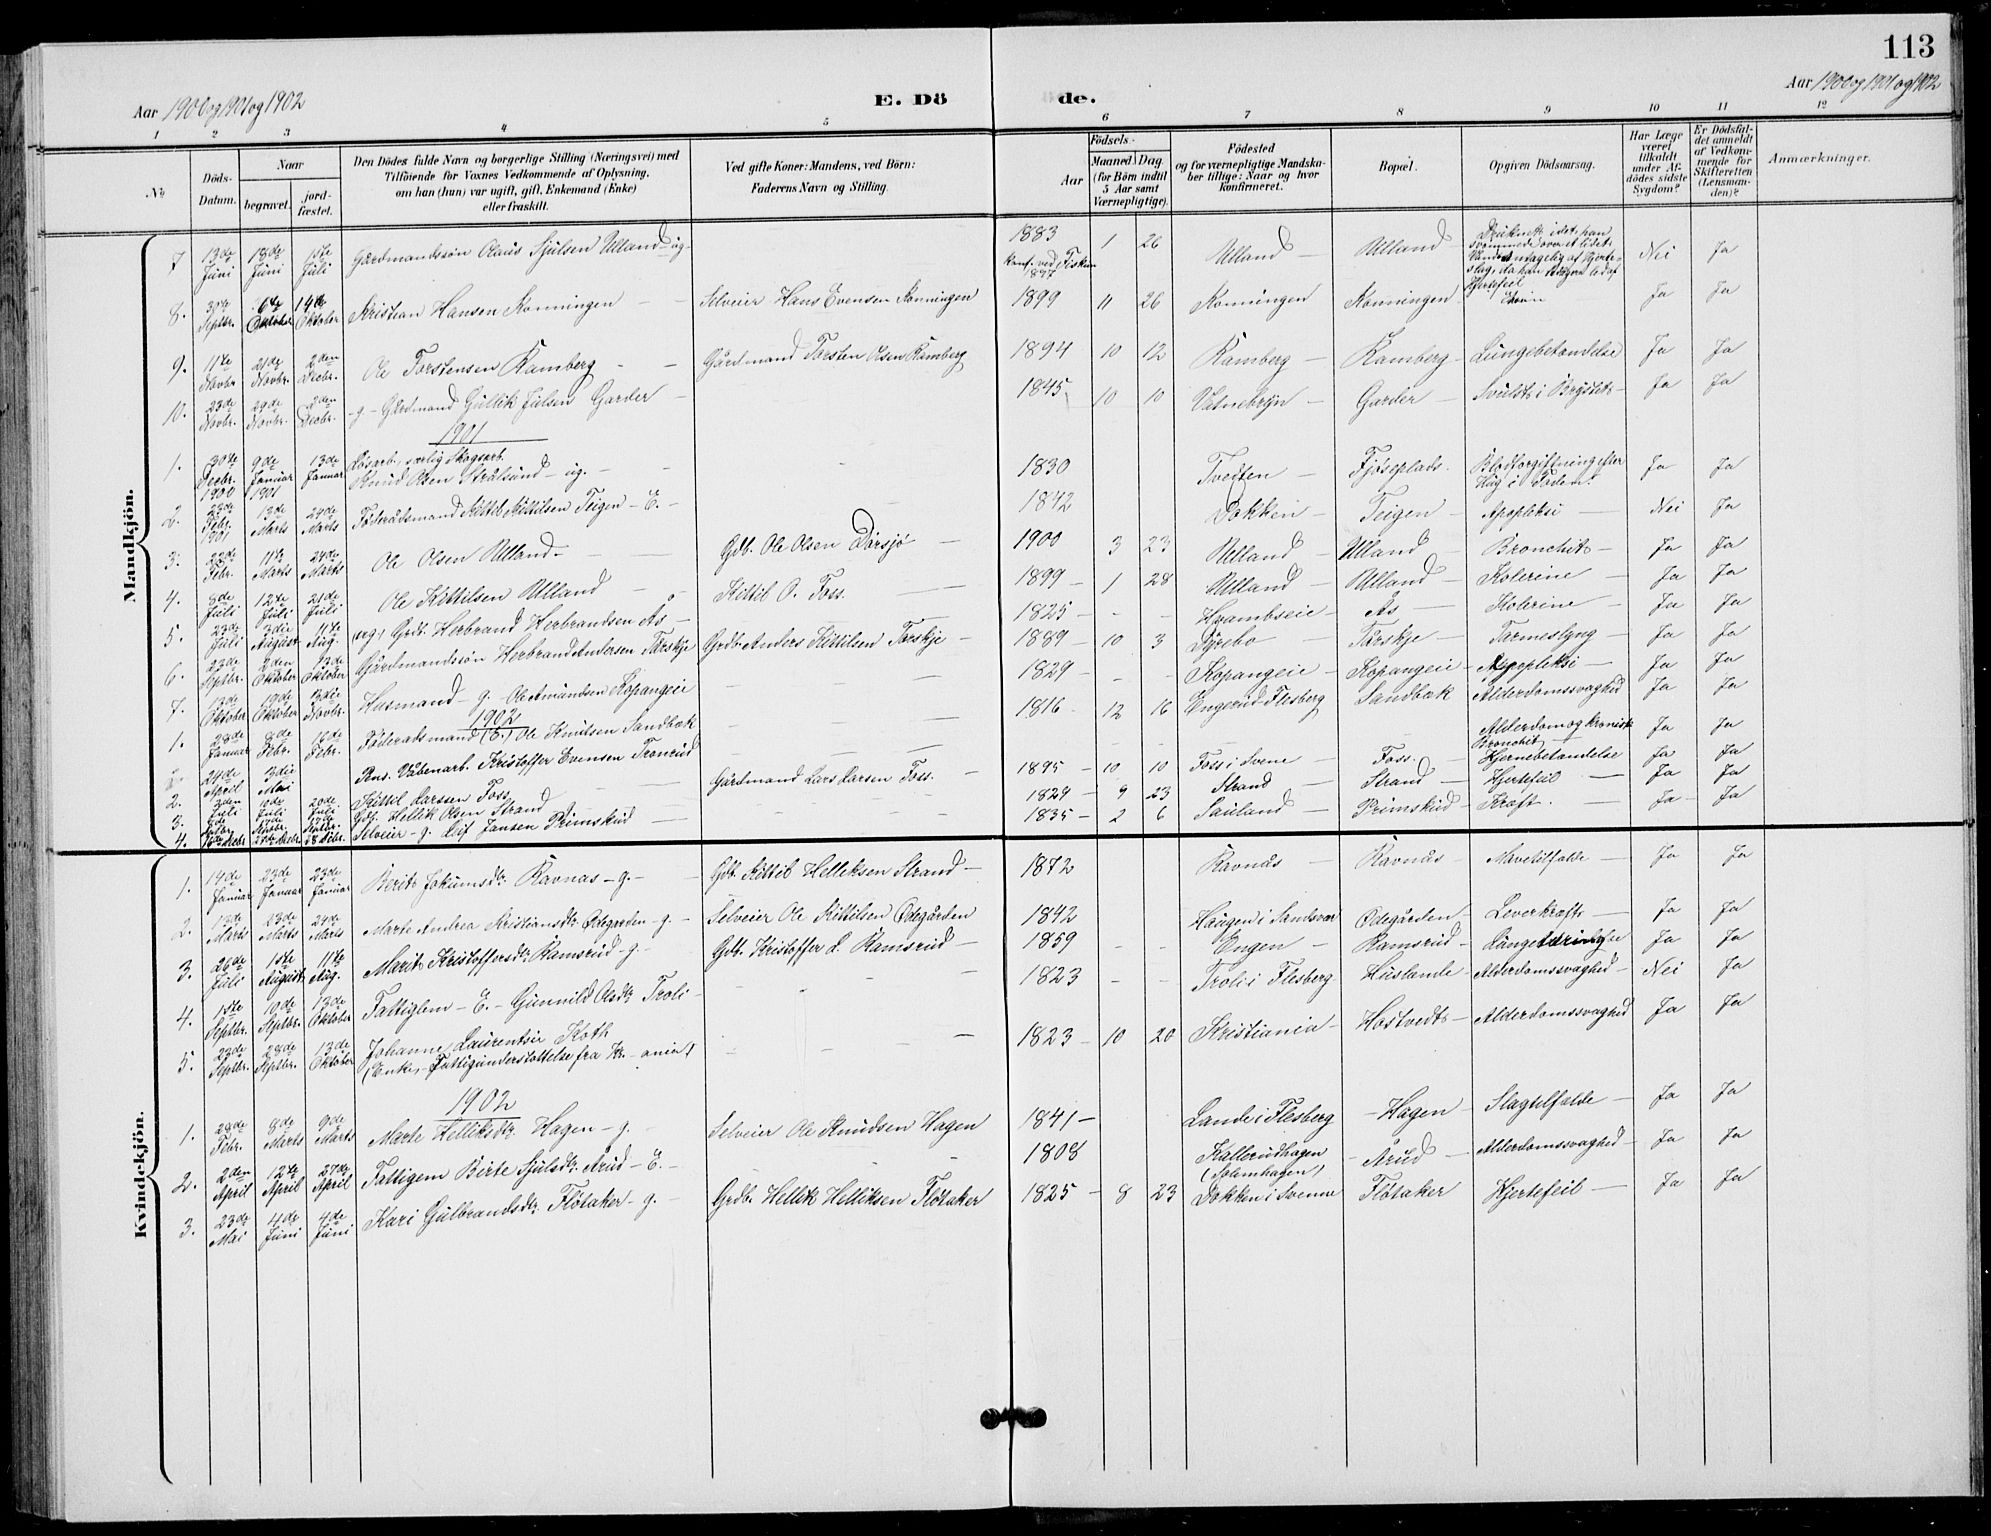 113
Aar 1900 og 1901 og 1902
E. Dö
de.
Aar 1900 og 1901 og 1902
1 2 3 4 5 6 7 8 9 10 11 12
No
Döds-Datum.
Naar
begravet.
jord-fæstet.
Den Dödes fulde Navn og borgerlige Stilling (Næringsvei) med
Tilföiende for Voxnes Vedkommende af Oplysning,
om han (hun) var ugift, gift, Enkemand (Enke)
eller fraskilt.
Ved gifte Koner: Mandens, ved Börn:
Faderens Navn og Stilling.
Födsels-
Aar
Maaned Dag
(for Börn indtil
5 Aar samt
Værnepligtige).
Födested
og for værnepligtige Mandska-
ber tillige: Naar og hvor
konfirmeret.
Bopæl.
Opgiven Dödsaarsag.
Har Læge
været
tilkaldt
under Af-
dödes sidste
Sygdom?
Er Dödsfal-
det anmeldt
af Vedkom-
mende for
Skifteretten
(Lensman-
den)?
Anmærkninger.
Mandkjön.
7 13de Juni 18de Juni 1ste Juli Gårdmandssön Olaus Sjulsen Ulland ug. 1883 1 26 Ulland Ulland Druknet idet han svømmede over et lidet Vand Hjertefeil Nei Ja
8. 30te Septbr. 6te Oktober 14de Oktober Kristian Hansen Konningen — Selveier Hans Evensen Konningen 1899 11 26 Konningen Konningen Ja Ja
9. 11te Novbr. 21de Novbr. 2den Decbr. Ole Torstensen Ramberg — Gårdmand Torsten Olsen Ramberg 1894 10 12 Ramberg — Ramberg — Lungebetændelse Ja Ja
10. 23de Novbr. 29de Novbr. 2den Decbr. -g- Gårdmand Gullik Julsen Garder — 1845 10 10 Vatnebryn — Garder — Svulst i Brystet — Ja Ja
1901
1. 30te Decbr. 1900 9de Januar 1901 13de Januar Løsarb., særlig Skogsarb. Knud Olsen Strålsund — ug. — 1830 Tvedten — Fjøseplads. Blodforgiftning efter Hug i Foden. Ja Ja
2. 22de Febr. 1901 13de Marts 24de Marts Föderådsmand Kittil Kittilsen Teigen — E. — 1842 Dokken — Teigen — Apopleksi — Nei Ja
3. 22de Febr. 11te Marts 24de Marts Ole Olsen Ulland — Gdb. Ole Olsen Dørsjø — 1900 3 23 Ulland — Ulland — Bronchit — Ja Ja
4. 8de Juli 12te Juli 21de Juli Ole Kittilsen Ulland — Kittil O. Foss. 1899 — 1 28 Ulland — Ulland — Kolerine — Ja Ja
5. 23de Juli 3die August 11te Aug. Grdb. Herbrand Herbrandsen Ås — 1825 — — Ås — Kolerine — Ja Ja
6. 23de Septbr. 2den Oktober 13de Oktober Gårdmandssön Herbrand Andersen Tørskje Grdb. Anders Kittilsen Tørskje — 1889 — 10 3 Dyrebo — Tørskje — Tarmeslyng — Ja Ja
7. 13de Oktober 19de Oktober 3die Novbr. Husmand — g. — Ole Amundsen Kopangeie 1829 — Kopangeie — Kopangeie — Apopleksi — Ja Ja
1902
1. 28de Januar 8de Febr. 16de Febr. Föderadsmand (E.) Ole Knutsen Sandbæk 1816 12 16 Engerud Flesberg Sandbæk Alderdomssvaghed Ja Ja
2. 24de April 3die Mai Pens. Våbenarb. Kristoffer Evensen Tronrud Alderdom og kronisk Bronchit — Ja Ja
2. 3den Juli 10de Juli 20de Juli Kittil Larssen Foss. Gårdmand Lars Larsen Foss. — 1895 — 10 10 Foss i Svene — Foss. — Hjernebetændelse Ja Ja
3. Gdb. Hellik Olsen Strand 1829 — 9 23 Strand — Strand — Hjertefeil — Ja Ja
4. Selveier — g. Leif Jansen Primskud — 1835 — 2 6 Sauland — Primskud — Kræft. — Ja — Ja
Kvindekjön.
1. 14de Januar 23de Januar 23de Januar Berit Jokumsdtr. Ravnas — g. — Gdb. Kittil Helliksen Strand — 1872 Ravnås — Ravnås — Mavetilfælde — Ja Ja
2. 13de Marts 23de Marts 24de Marts Marte Andrea Kristiansdtr. Ödegarden — g. — Selveier Ole Kittilsen Ödegården 1842 Haugen i Sandsvær Ödegården — Leverkræft — Ja Ja
3. 26de Juli 1ste August 11te Aug. Marit Kristoffersdtr. Ramsrud — g. — Gdb. Kristoffer L. Ramsrud — 1859 — — Engen — Ramsrud — Lungetæring Ja Ja
4. 1ste Septbr. 10de Septbr. 13de Oktober Fattiglem — E. — Gunnild Olsdtr. Troli — 1823 — — Troli i Flesberg Huslende — Alderdomssvaghed — Nei Ja
5. 22de Septbr. 28de Septbr. 13de Oktober Johanne Laurentsie Koth (Enke, Fattigunderstøttelse fra Kr.-ania) — 1823 — 10 20 Kristiania — Hostvedt — Alderdomssvaghed Ja Ja
1902
1. 28de Febr. 8de Marts 9de Marts Marte Helliksdtr. Hagen — g. — Selveier Ole Knudsen Hagen 1841 — Lande i Flesberg — Hagen — Slagtilfælde — Ja Ja
2. 2den April 12te April 27de April Fattiglem Birte Sjulsdtr. Årud — E. — 1808 Kallerudhagen (Solemhagen) — Årud — Alderdomssvaghed — Ja Ja
3. 23de Mai 4de Juni 4de Juni Kari Gulbrandsdtr. Fløtaker — g. — Grdb. Hellik Helliksen Fløtaker 1825 — 8 23 Dokken i Svenne Fløtaker Hjertefeil — Ja Ja